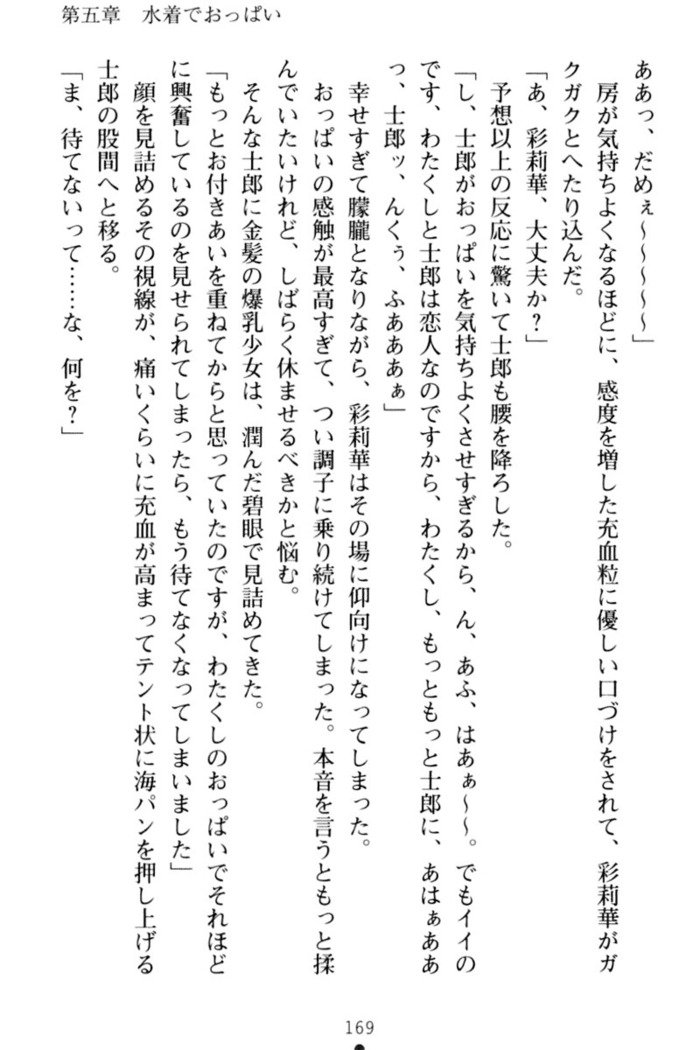 第五章　水着でおっぱい
ああっ、だめぇ～～～～～」
　房が気持ちよくなるほどに、感度を増した充血粒に優しい口づけをされて、彩莉華がガ
クガクとへたり込んだ。
「あ、彩莉華、大丈夫か？」
　予想以上の反応に驚いて士郎も腰を降ろした。
「し、士郎がおっぱいを気持ちよくさせすぎるから、ん、あふ、はあぁ～～。でもイイの
です、わたくしと士郎は恋人なのですから、わたくし、もっともっと士郎に、あはぁああ
っ、士郎ッ、んくぅ、ふああぁぁ」
　幸せすぎて朦朧となりながら、彩莉華はその場に仰向けになってしまった。
　おっぱいの感触が最高すぎて、つい調子に乗り続けてしまった。本音を言うともっと揉
んでいたいけれど、しばらく休ませるべきかと悩む。
　そんな士郎に金髪の爆乳少女は、潤んだ碧眼で見詰めてきた。
「もっとお付きあいを重ねてからと思っていたのですが、わたくしのおっぱいでそれほど
に興奮しているのを見せられてしまったら、もう待てなくなってしまいました」
　顔を見詰めるその視線が、痛いくらいに充血が高まってテント状に海パンを押し上げる
士郎の股間へと移る。
「ま、待てないって……な、何を？」
169